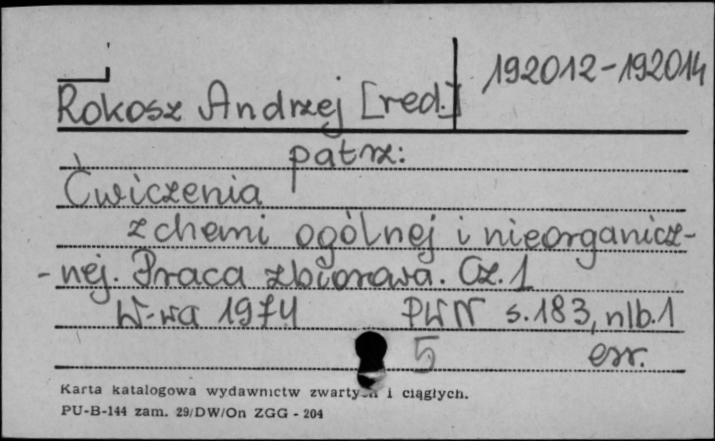 192012-192014
Rokosz Andrzej [red.]
patrz:
Ćwiczenia
z chemi ogólnej i nieorganicz-
-nej. Praca zbiorowa. Cz. 1
W-wa 1974 PWN s. 183, nlb. 1
5
Karta katalogowa wydawnictw zwartych i ciągłych.
PU-B-144 zam. 29/DW/On ZGG - 204